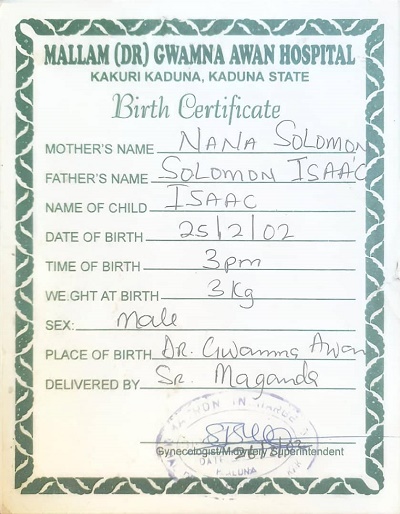 MALLAM (DR) GWAMNA AWAN HOSPITAL
KAKURI KADUNA, KADUNA STATE
Birth Certificate
MOTHER'S NAME NANA SOLOMON
FATHER'S NAME SOLOMON ISAAC
NAME OF CHILD ISAAC
DATE OF BIRTH 25/2/02
TIME OF BIRTH 3pm
WEIGHT AT BIRTH 3kg
SEX: Male
PLACE OF BIRTH DR. Gwamna Awan
DELIVERED BY Sr. Maganda
KADUNA
Gynecologist/Midwifery Superintendent